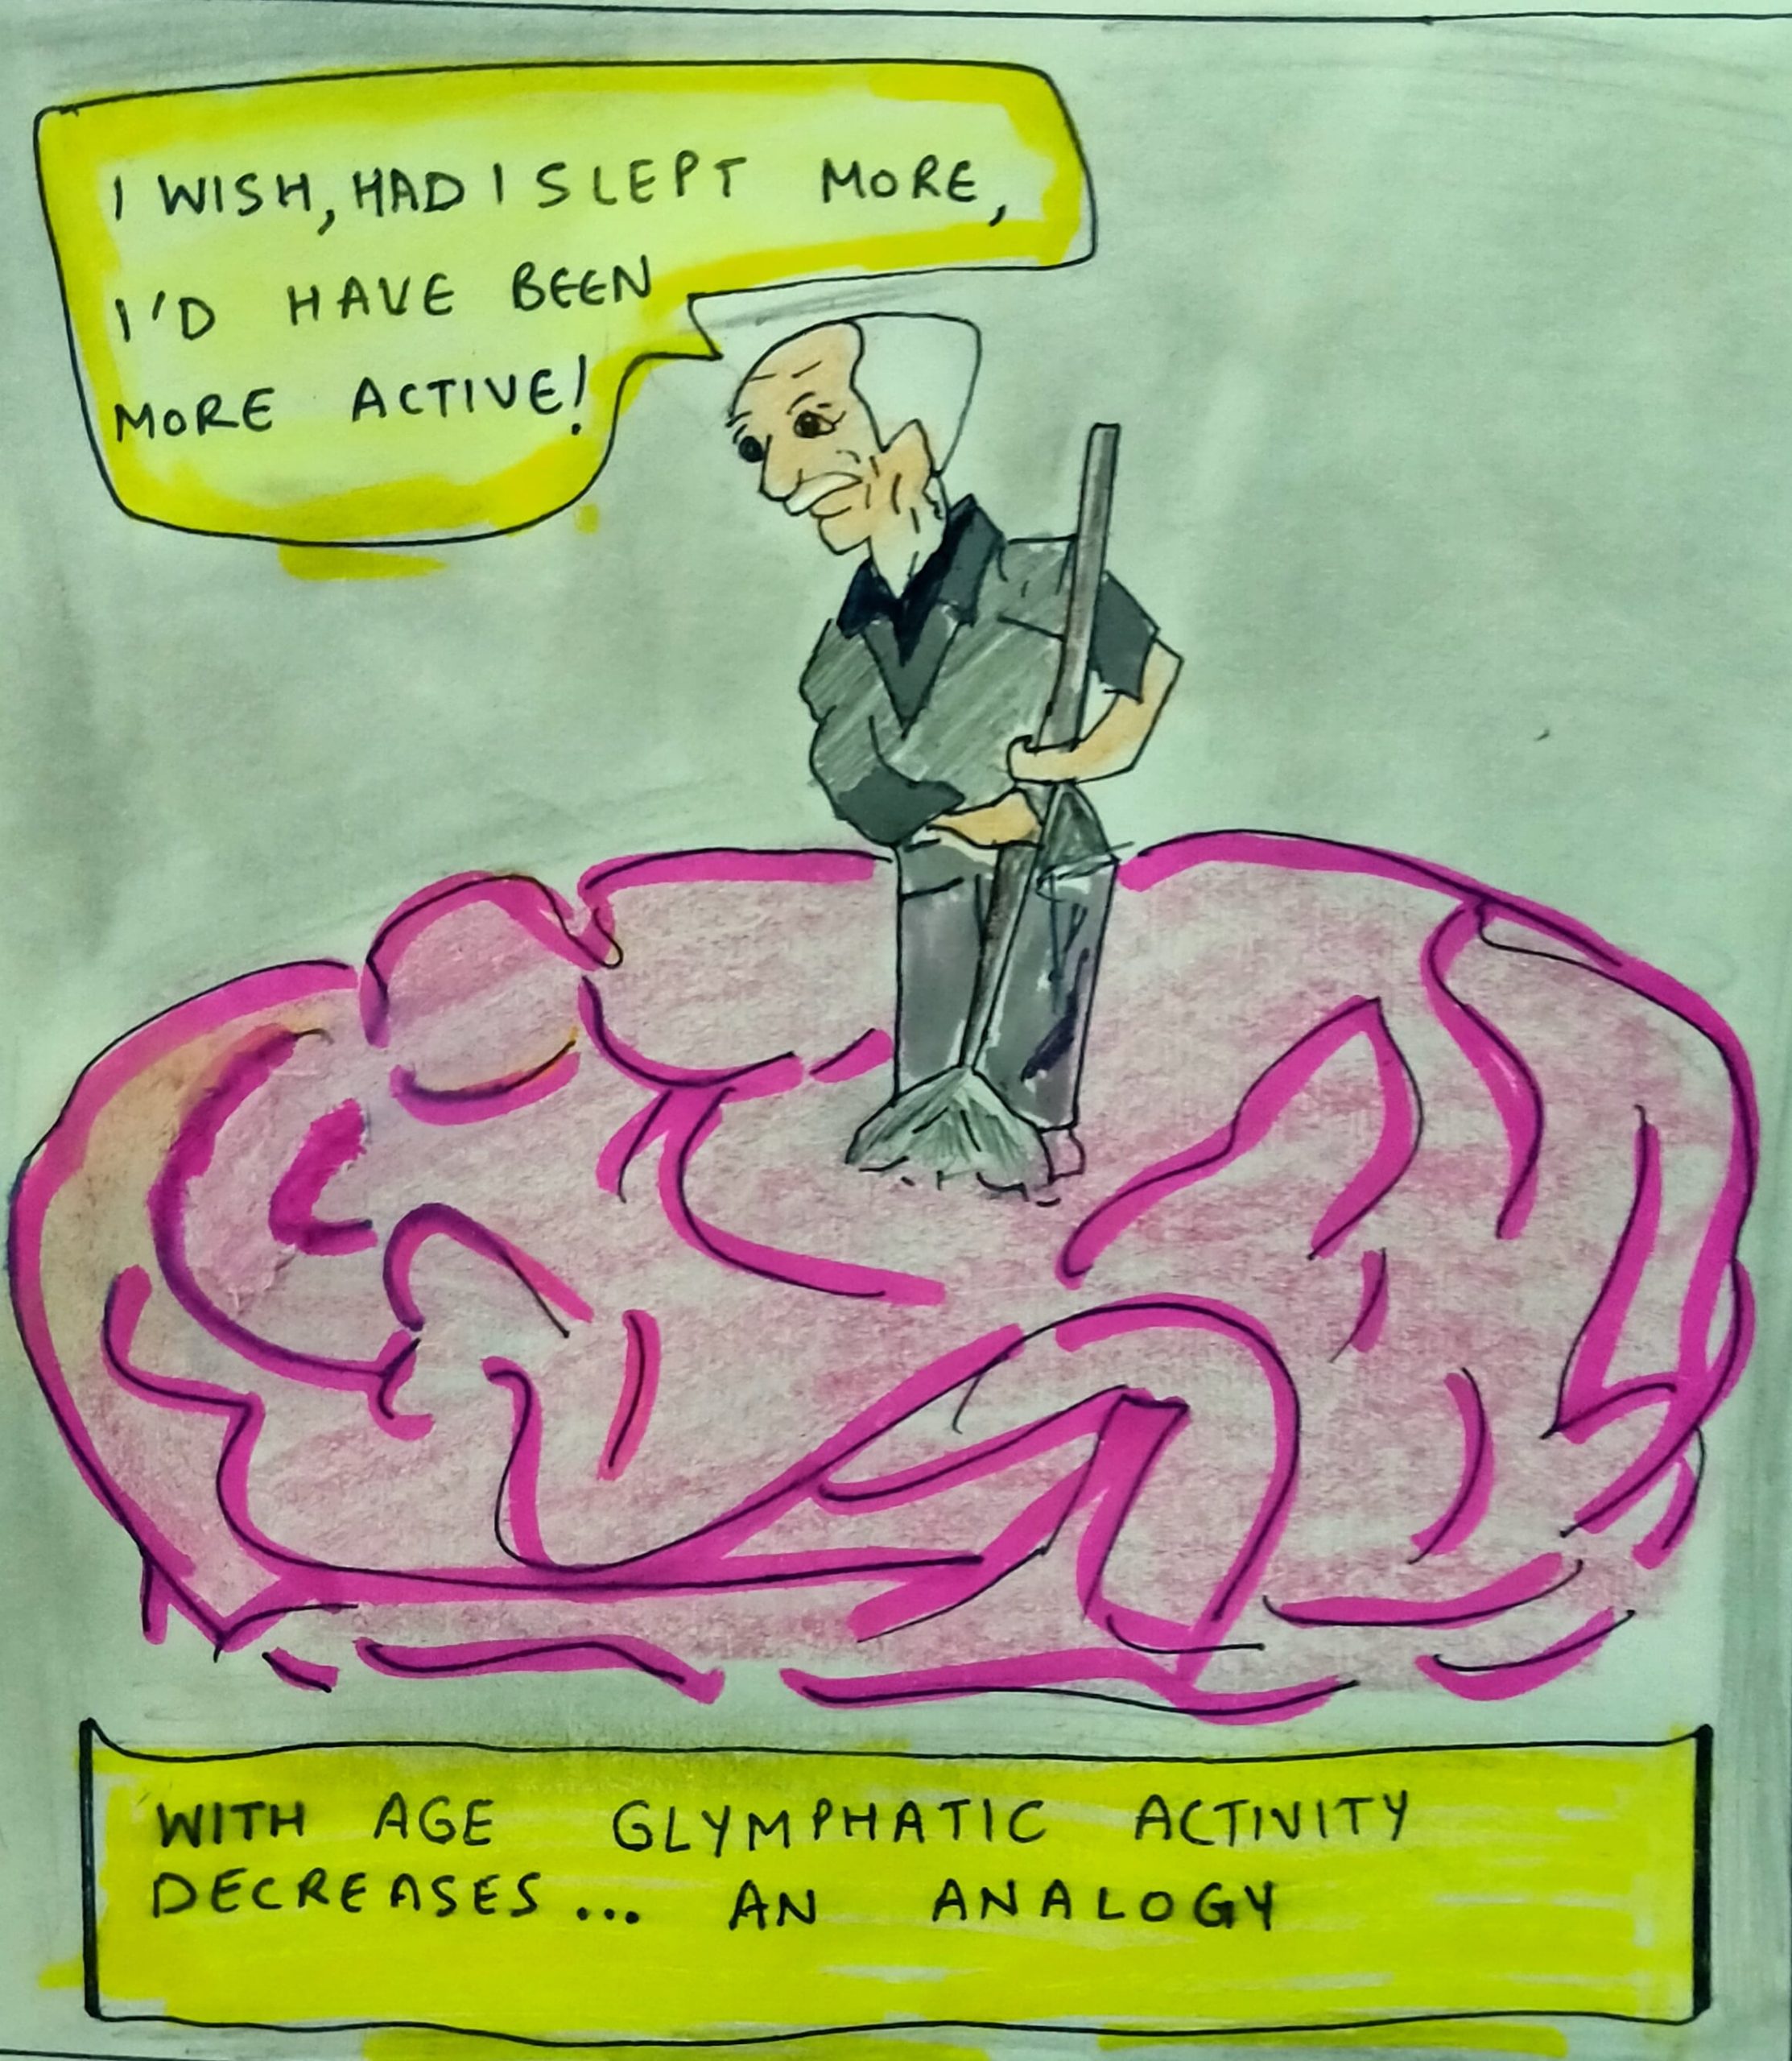 I WISH, HAD I SLEPT MORE,
I'D HAVE BEEN
MORE ACTIVE!
WITH AGE GLYMPHATIC ACTIVITY
DECREASES... AN ANALOGY